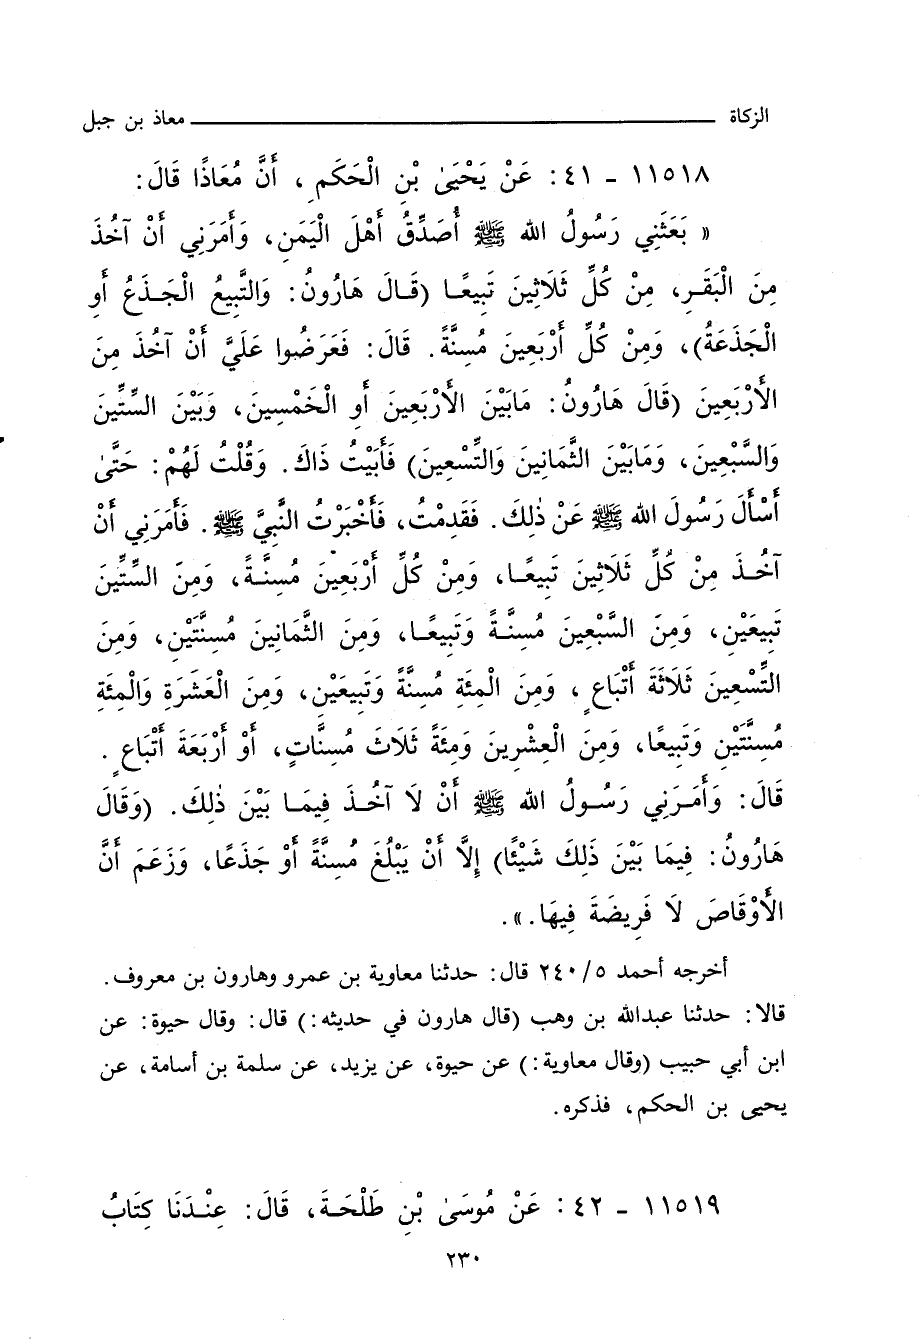 الزكاة ــــــــــــــــ معاذ بن جبل
١١٥١٨ ـ ٤١: عَنْ يَحْيَىٰ بْنِ الْحَكَمِ، أَنَّ مُعَاذًا قَالَ:
« بَعَثَنِي رَسُولُ الله ﷺ أُصَدِّقُ أَهْلَ الْيَمَنِ، وَأَمَرَنِي أَنْ آخُذَ
مِنَ الْبَقَرِ، مِنْ كُلِّ ثَلَاثِينَ تَبِيعًا (قَالَ هَارُونُ: وَالتَّبِيعُ الْجَذَعُ أَوِ
الْجَذَعَةُ)، وَمِنْ كُلِّ أَرْبَعِينَ مُسِنَّةً. قَالَ: فَعَرَضُوا عَلَيَّ أَنْ آخُذَ مِنَ
الأَرْبَعِينَ (قَالَ هَارُونُ: مَابَيْنَ الأَرْبَعِينَ أَوِ الْخَمْسِينَ، وَبَيْنَ السِّتِّينَ
وَالسَّبْعِينَ، وَمَابَيْنَ الثَّمَانِينَ وَالتِّسْعِينَ) فَأَبَيْتُ ذَاكَ. وَقُلْتُ لَهُمْ: حَتَّىٰ
أَسْأَلَ رَسُولَ الله ﷺ عَنْ ذٰلِكَ. فَقَدِمْتُ، فَأَخْبَرْتُ النَّبِيَّ ﷺ. فَأَمَرَنِي أَنْ
آخُذَ مِنْ كُلِّ ثَلَاثِينَ تَبِيعًا، وَمِنْ كُلِّ أَرْبَعِينَ مُسِنَّةً، وَمِنَ السِّتِّينَ
تَبِيعَيْنِ، وَمِنَ السَّبْعِينَ مُسِنَّةً وَتَبِيعًا، وَمِنَ الثَّمَانِينَ مُسِنَّتَيْنِ، وَمِنَ
التِّسْعِينَ ثَلَاثَةَ أَتْبَاعٍ، وَمِنَ الْمِئَةِ مُسِنَّةً وَتَبِيعَيْنِ، وَمِنَ الْعَشَرَةِ وَالْمِئَةِ
مُسِنَّتَيْنِ وَتَبِيعًا، وَمِنَ الْعِشْرِينَ وَمِئَةً ثَلَاثَ مُسِنَّاتٍ، أَوْ أَرْبَعَةَ أَتْبَاعٍ.
قَالَ: وَأَمَرَنِي رَسُولُ الله ﷺ أَنْ لَا آخُذَ فِيمَا بَيْنَ ذٰلِكَ. (وَقَالَ
هَارُونُ: فِيمَا بَيْنَ ذَلِكَ شَيْئًا) إِلَّا أَنْ يَبْلُغَ مُسِنَّةً أَوْ جَذَعًا، وَزَعَمَ أَنَّ
الأَوْقَاصَ لَا فَرِيضَةَ فِيهَا.».
أخرجه أحمد ٢٤٠/٥ قال: حدثنا معاوية بن عمرو وهارون بن معروف.
قالا: حدثنا عبدالله بن وهب (قال هارون في حديثه:) قال: وقال حيوة: عن
ابن أبي حبيب (وقال معاوية:) عن حيوة، عن يزيد، عن سلمة بن أسامة، عن
يحيى بن الحكم، فذكره.
١١٥١٩ ـ ٤٢: عَنْ مُوسَىٰ بْنِ طَلْحَةَ، قَالَ: عِنْدَنَا كِتَابُ
٢٣٠